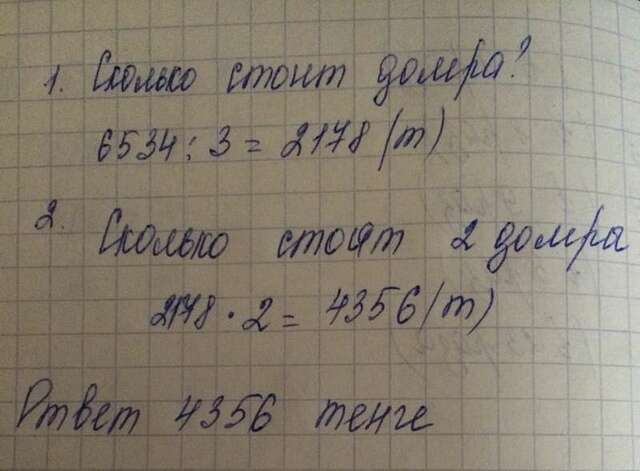 1. Сколько стоит домра?
6534 : 3 = 2178 (т)
2. Сколько стоят 2 домра
2178 · 2 = 4356 (т)
Ответ 4356 тенге